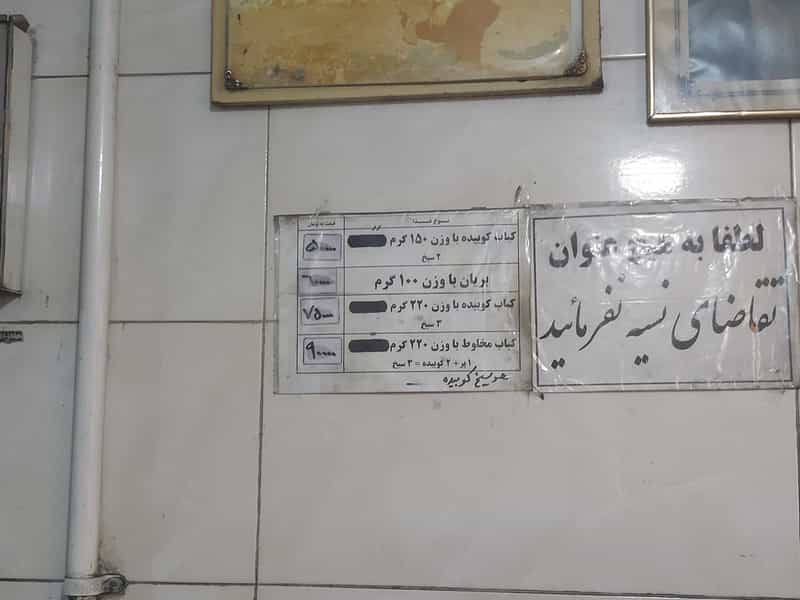 لطفا به هیچ عنوان
تقاضای نسیه نفرمائید
نوع غذا
قیمت به تومان
کباب کوبیده با وزن ۱۵۰ گرم
۲ سیخ
۵۰۰۰۰
بریان با وزن ۱۰۰ گرم
۶۰۰۰۰
کباب کوبیده با وزن ۲۲۰ گرم
۳ سیخ
۷۵۰۰۰
کباب مخلوط با وزن ۲۲۰ گرم
۱ پر + ۲ کوبیده = ۳ سیخ
۹۰۰۰۰
هر سیخ کوبیده